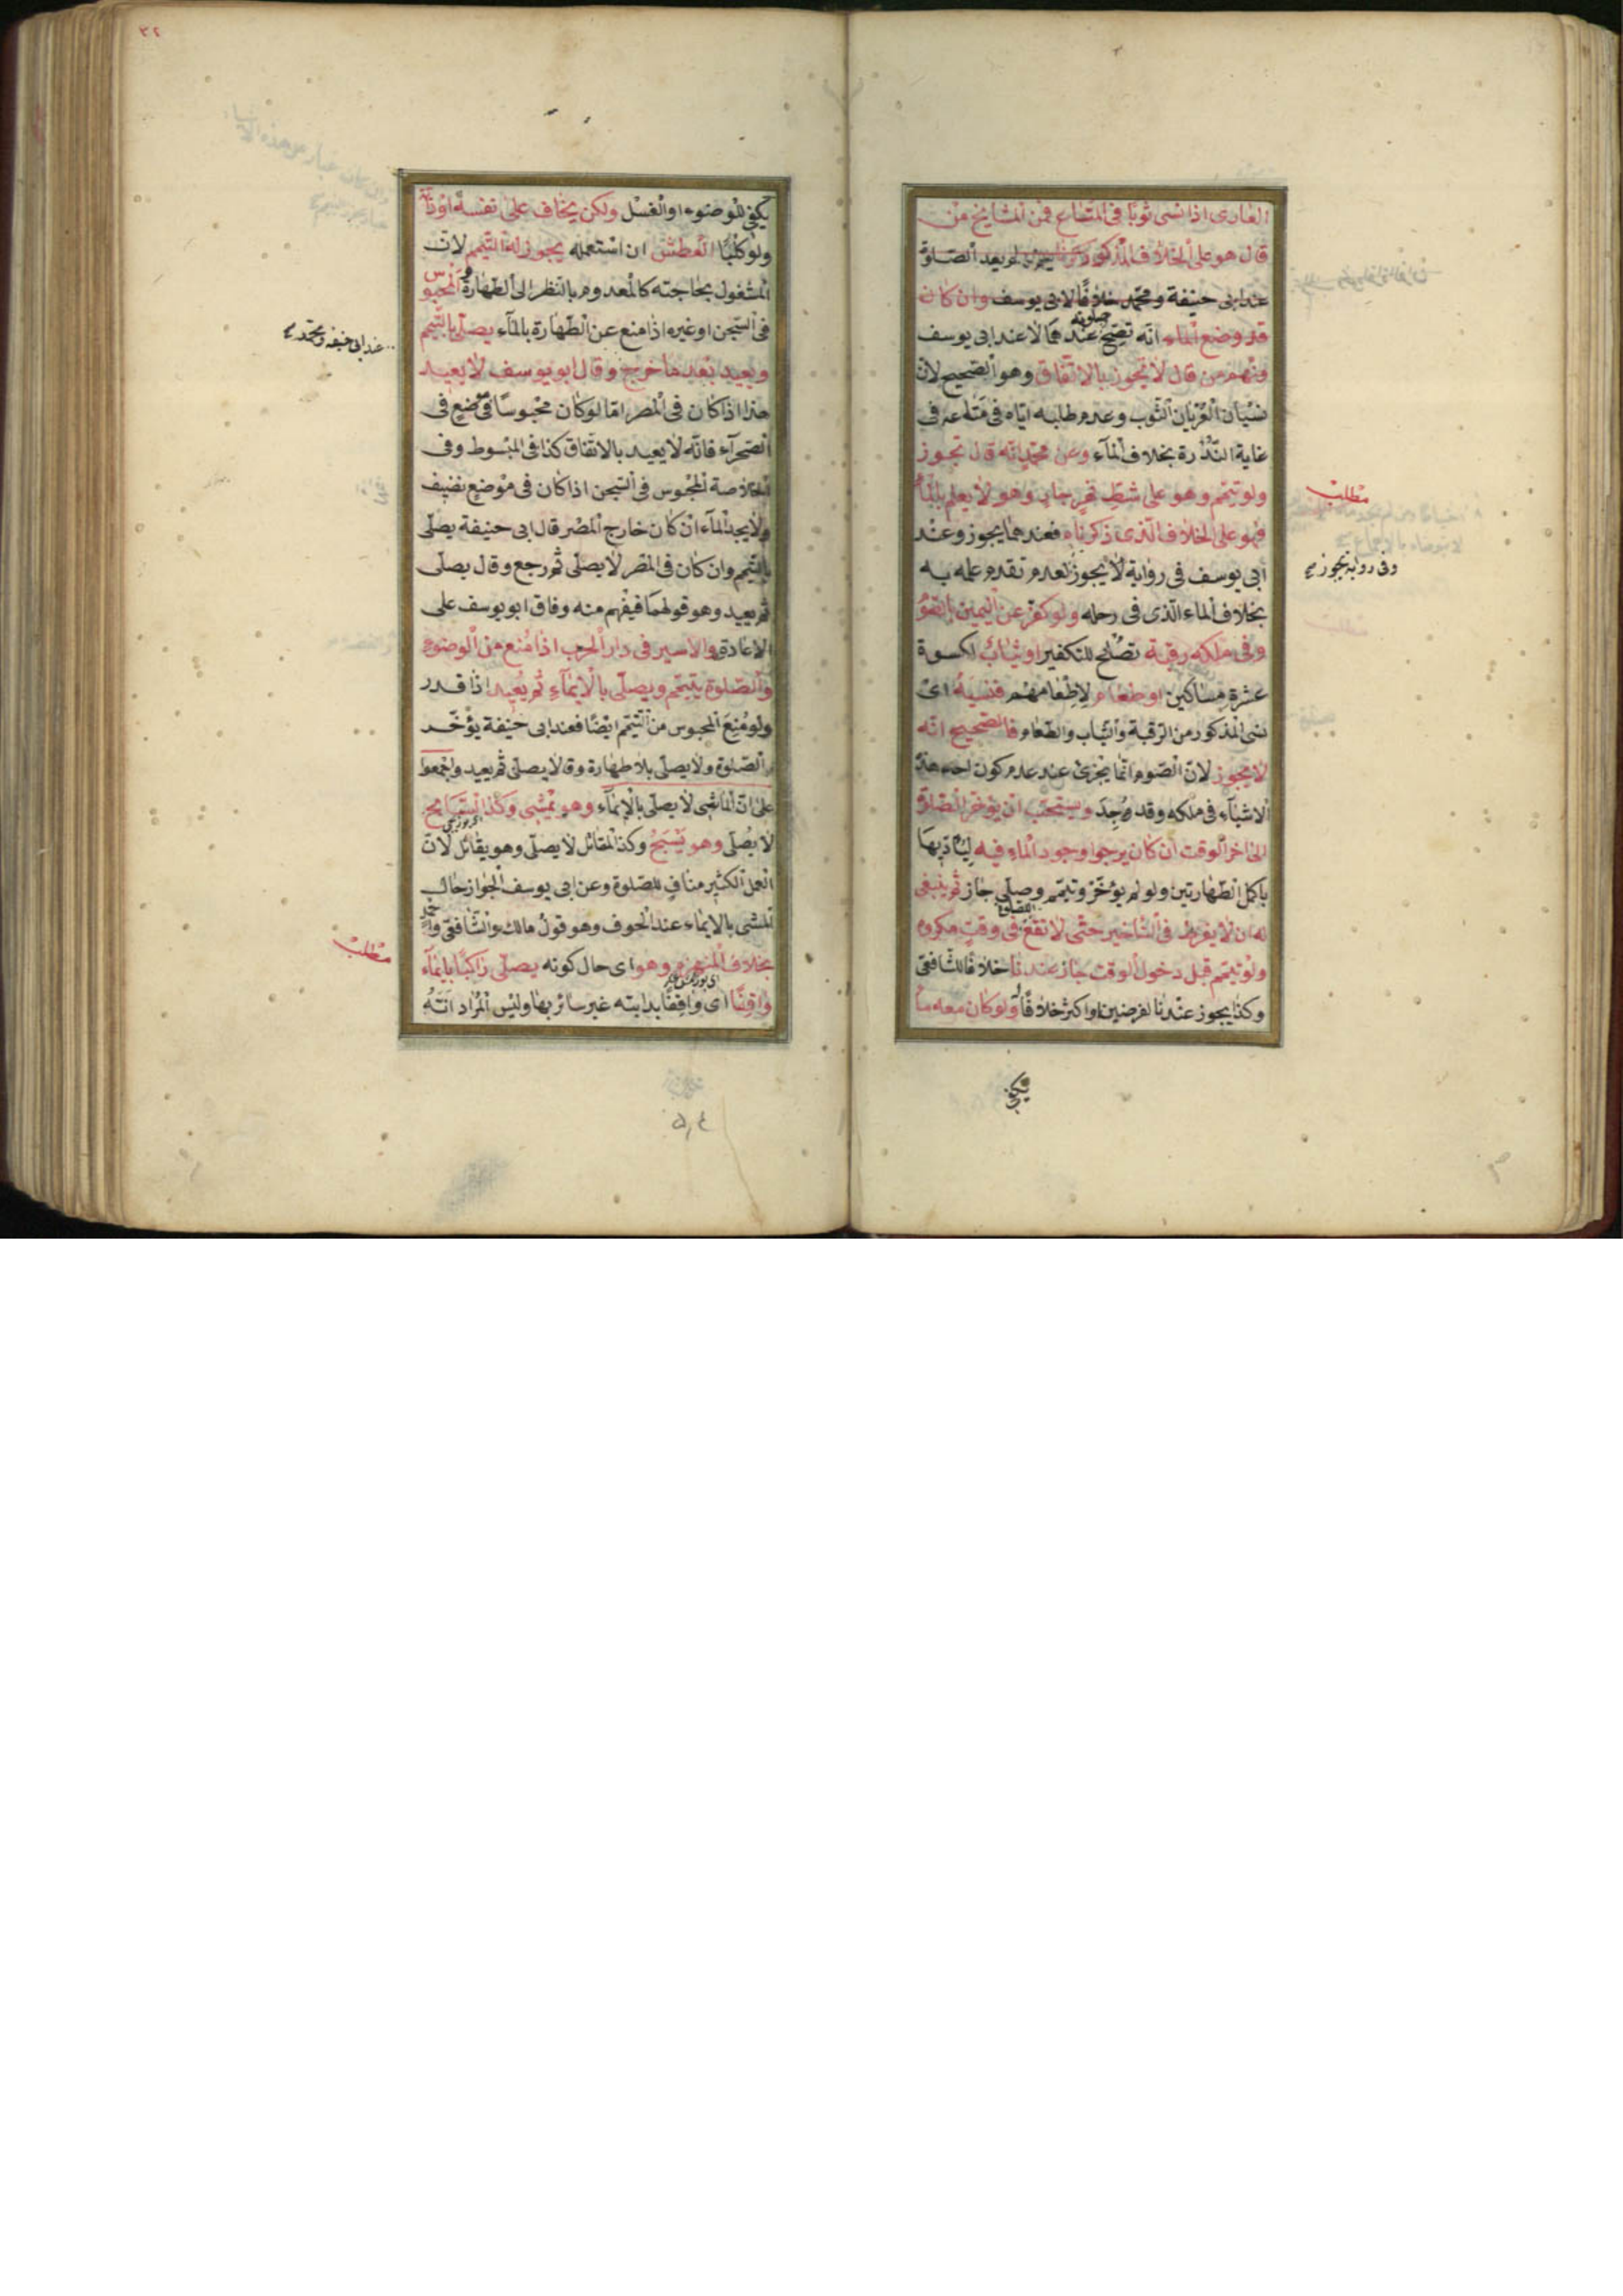 العارى اذا نسى ثوبا فى المتاع فمن المشايخ من
قال هو على الخلاف المذكور لم يعد الصلوة
عند ابى حنيفة ومحمد خلافا لابى يوسف وان كان
قد وضع الماء انه تصح صلوته عندهما لا عند ابى يوسف
ومنهم من قال لا تجوز بالاتفاق وهو الصحيح لان
نسيان العريان الثوب وعدم طلبه اياه فى متاعه فى
غاية الندرة بخلاف الماء وعن محمد انه قال تجوز
ولو تيمم وهو على شط نهر جار وهو لا يعلم بالماء
فهو على الخلاف الذى ذكرناه فعندهما يجوز وعند
ابى يوسف فى رواية لا يجوز لعدم تقدم علمه به
بخلاف الماء الذى فى رحله ولو كفر عن اليمين بالصوم
وفى ملكه رقبة تصلح للتكفير او ثياب لكسوة
عشرة مساكين او طعام لاطعامهم فنسيه اى
نسى المذكور من الرقبة والثياب والطعام فالصحيح انه
لا يجوز لان الصوم انما يجزئ عند عدم كون احد هذه
الاشياء فى ملكه وقد وجد ويستحب ان يؤخر الصلاة
الى اخر الوقت ان كان يرجوا وجود الماء فيه ليؤديها
باكمل الطهارتين ولو لم يؤخر وتيمم وصلى جاز ثم ينبغى
له ان لا يفرط فى التاخير حتى لا تقع الصلوة فى وقت مكروه
ولو تيمم قبل دخول الوقت جاز عندنا خلافا للشافعى
وكذا يجوز عندنا لفرضين او اكثر خلافا له ولو كان معه ما
يكفى
مطلب
وفى رواية تجوز صح
٣٢
يكفى للوضوء او الغسل ولكن يخاف على نفسه او دابته
ولو كلبا العطش ان استعمله يجوز له التيمم لان
المشغول بحاجته كالمعدوم بالنظر الى الطهارة والمحبوس
فى السجن او غيره اذا منع عن الطهارة بالماء يصلى بالتيمم
ويعيد بعد ما خرج وقال ابو يوسف لا يعيد
هذا اذا كان فى المصر اما لو كان محبوسا فى موضع فى
الصحرآء فانه لا يعيد بالاتفاق كذا فى المبسوط وفى
الخلاصة المحبوس فى السجن اذا كان فى موضع نضيف
ولا يجد المآء ان كان خارج المصر قال ابى حنيفة يصلى
بالتيمم وان كان فى المصر لا يصلى ثم رجع وقال يصلى
ثم يعيد وهو قولهما فيفهم منه وفاق ابو يوسف على
الاعادة والاسير فى دار الحرب اذا منع من الوضوء
والصلوة يتيمم ويصلى بالايمآء ثم يعيد اذا قدر
ولو منع المحبوس من التيمم ايضا فعند ابى حنيفة يؤخر
الصلوة ولا يصلى بلا طهارة وقالا يصلى ثم يعيد واجمعوا
على ان الماشى لا يصلى بالايمآء وهو يمشى وكذا السابح
لا يصلى وهو يسبح وكذا المقاتل لا يصلى وهو يقاتل لان
العمل الكثير مناف للصلوة وعن ابى يوسف الجواز حال
المشى بالايماء عند الخوف وهو قول مالك والشافعى واحمد
بخلاف المنهزم وهو اى حال كونه يصلى راكبا بايمآء
واقفا اى واقفا بدابته غير سائر بها وليس المراد انه
عند ابى حنيفة ومحمد صح
مطلب